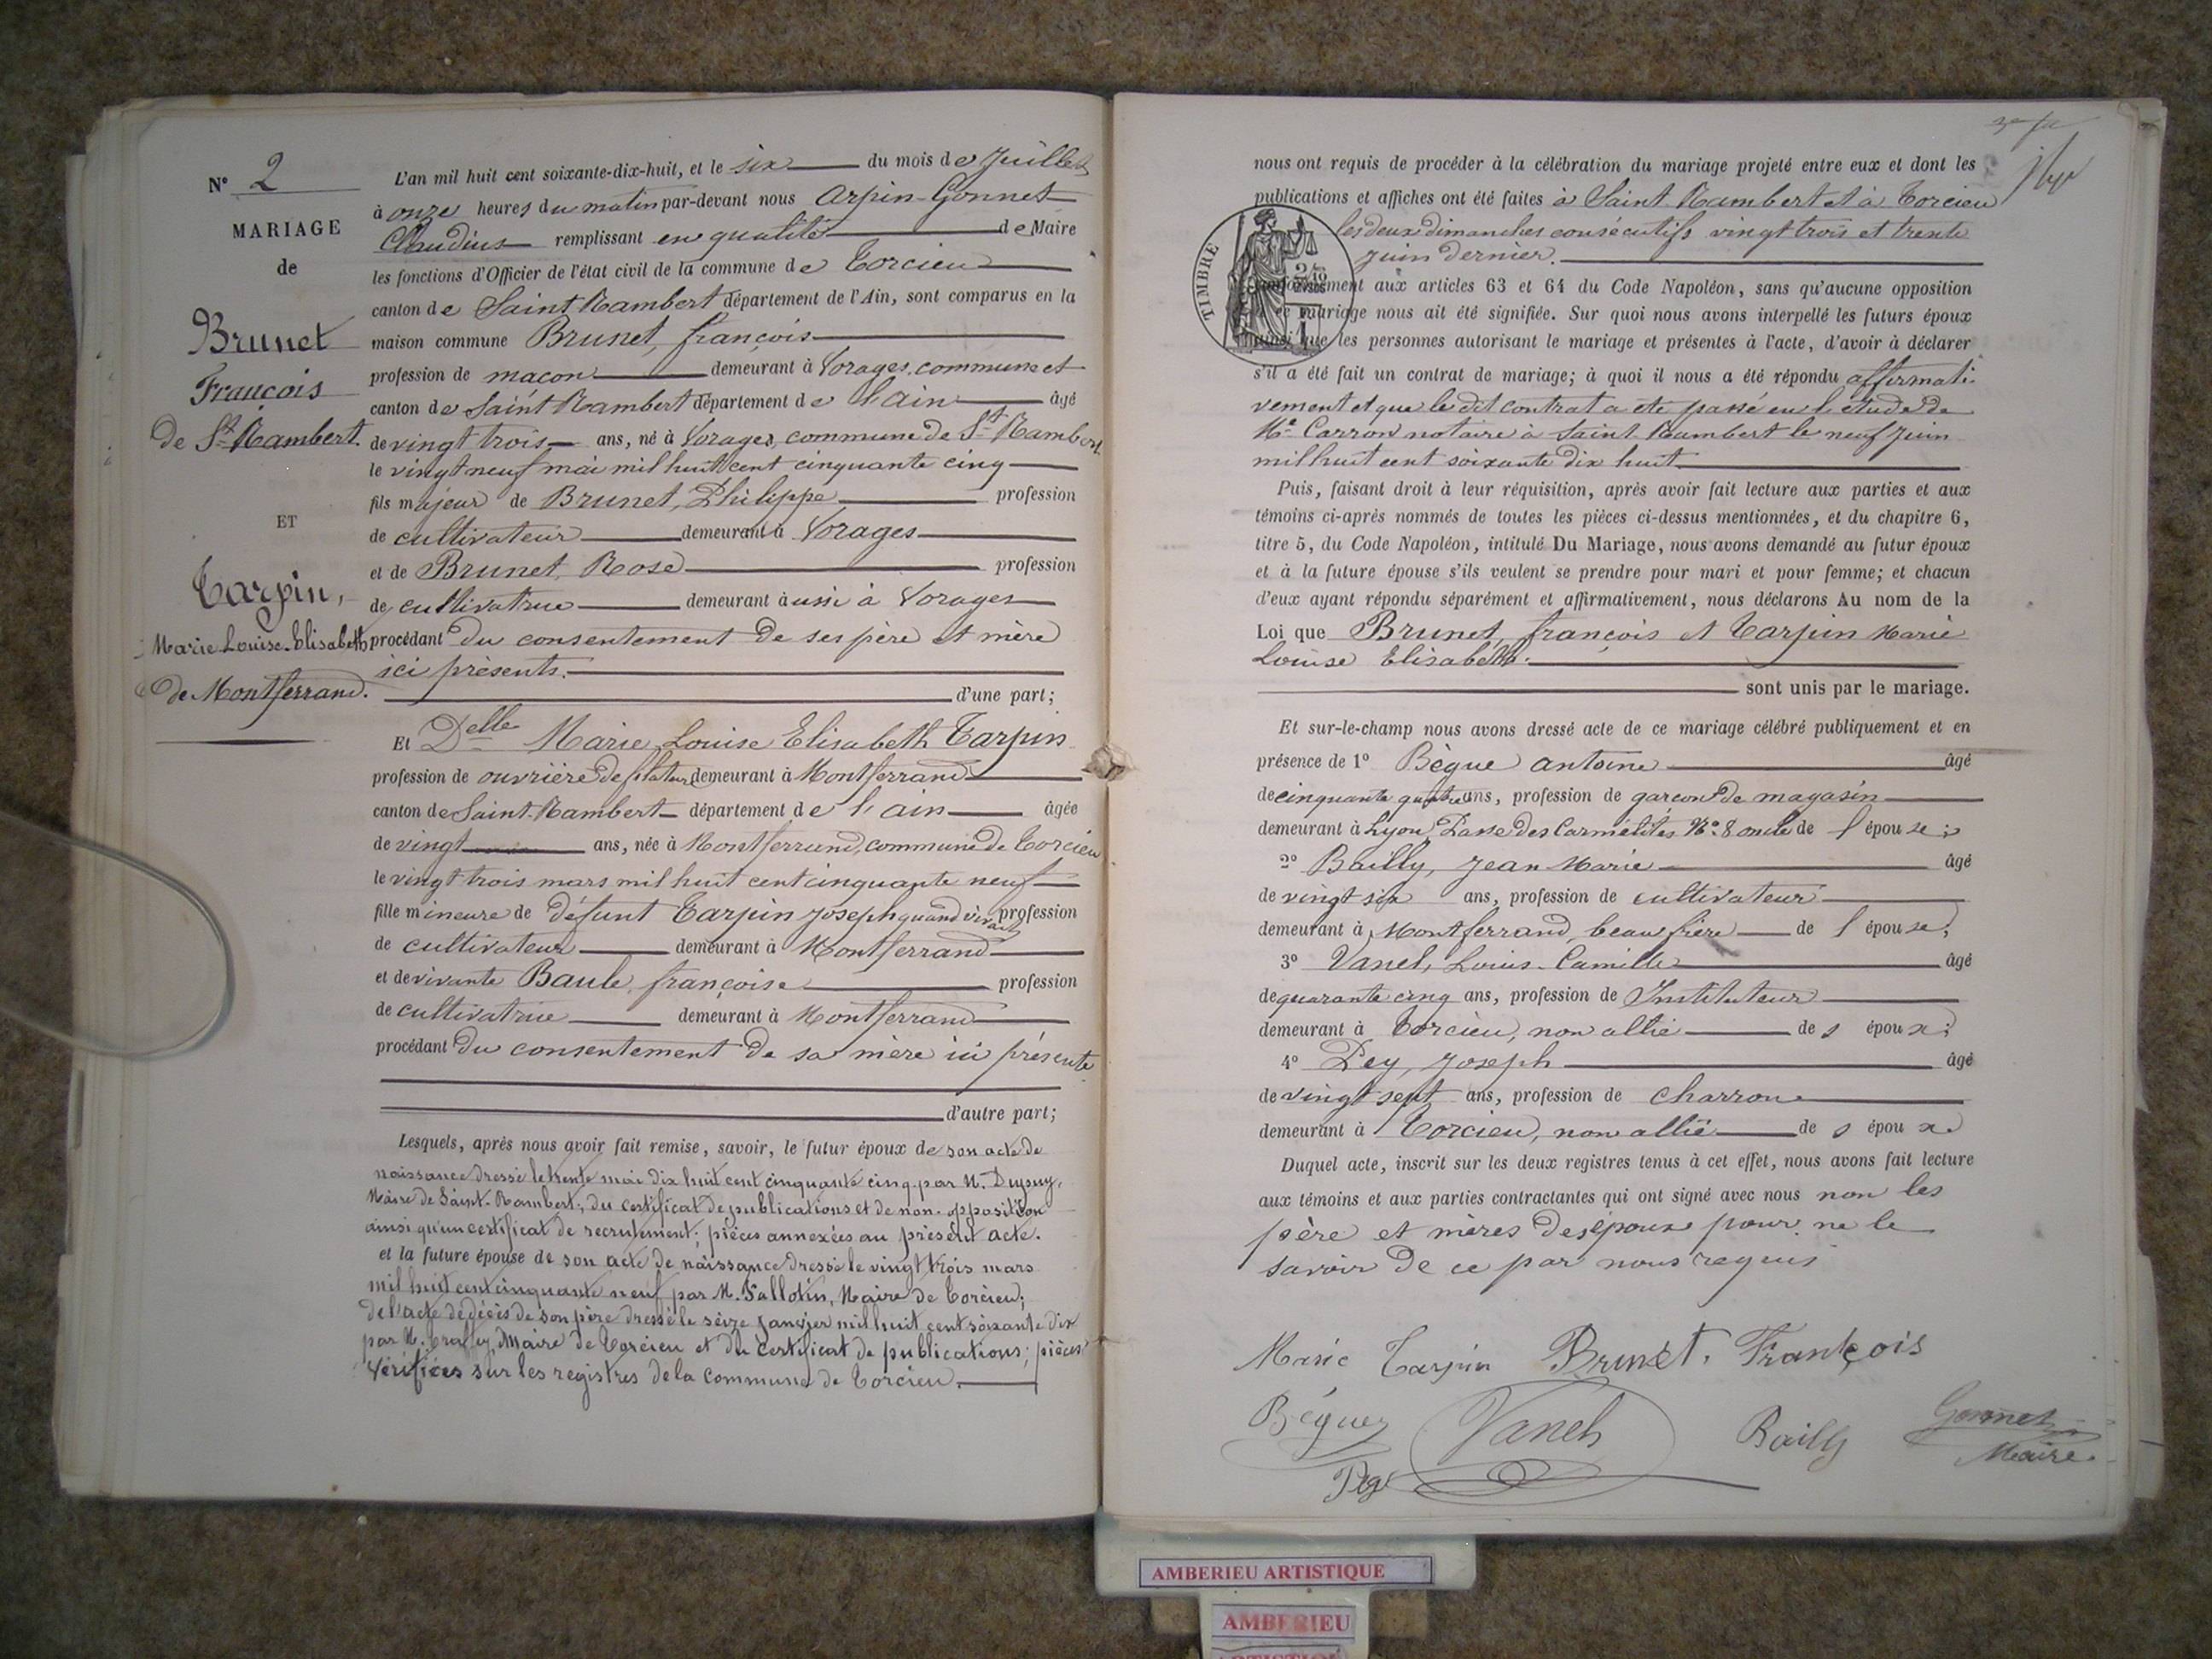 N° 2
MARIAGE
de
Brunet
François
de St Rambert.
ET
Tarpin,
Marie Louise Elisabeth
de Montferrand.
L'an mil huit cent soixante-dix-huit, et le six du mois de Juillet
à onze heures du matin par-devant nous Arpin-Gonnet
Claudius remplissant en qualité de Maire
les fonctions d'Officier de l'état civil de la commune de Torcieu
canton de Saint Rambert département de l'Ain, sont comparus en la
maison commune Brunet, françois
profession de maçon demeurant à Vorages, commune et
canton de Saint Rambert département de l'ain âgé
de vingt trois ans, né à Vorages, commune de St Rambert
le vingt neuf mai mil huit cent cinquante cinq
fils majeur de Brunet, Philippe profession
de cultivateur demeurant à Vorages
et de Brunet, Rose profession
de cultivatrice demeurant aussi à Vorages
procédant du consentement de ses père et mère
ici présents.
d'une part;
Et Delle Marie Louise Elisabeth Tarpin
profession de ouvrière de filature demeurant à Montferrand
canton de Saint-Rambert département de l'ain âgée
de vingt ans, née à Montferrand, commune de Torcieu
le vingt trois mars mil huit cent cinquante neuf
fille mineure de défunt Tarpin Joseph quand vivait profession
de cultivateur demeurant à Montferrand
et de vivante Baule, françoise profession
de cultivatrice demeurant à Montferrand
procédant du consentement de sa mère ici présente
d'autre part;
Lesquels, après nous avoir fait remise, savoir, le futur époux de son acte de
naissance dressé le trente mai dix huit cent cinquante cinq par M. Dupuy,
Maire de Saint-Rambert, du certificat de publications et de non-opposition
ainsi qu'un certificat de recrutement; pièces annexées au présent acte.
et la future épouse de son acte de naissance dressé le vingt trois mars
mil huit cent cinquante neuf par M. Vallotin, Maire de Torcieu;
de l'acte de décès de son père dressé le seize Janvier mil huit cent soixante dix
par M. Maire de Torcieu et du certificat de publications; pièces
vérifiées sur les registres de la commune de Torcieu.
nous ont requis de procéder à la célébration du mariage projeté entre eux et dont les
publications et affiches ont été faites à Saint Rambert et à Torcieu
les deux dimanches consécutifs vingt trois et trente
juin dernier.
TIMBRE
conformément aux articles 63 et 64 du Code Napoléon, sans qu'aucune opposition
à ce mariage nous ait été signifiée. Sur quoi nous avons interpellé les futurs époux
ainsi que les personnes autorisant le mariage et présentes à l'acte, d'avoir à déclarer
s'il a été fait un contrat de mariage; à quoi il nous a été répondu affirmati-
vement et que le dit contrat a été passé en l'étude de
Me Carron notaire à Saint-Rambert le neuf Juin
mil huit cent soixante dix huit
Puis, faisant droit à leur réquisition, après avoir fait lecture aux parties et aux
témoins ci-après nommés de toutes les pièces ci-dessus mentionnées, et du chapitre 6,
titre 5, du Code Napoléon, intitulé Du Mariage, nous avons demandé au futur époux
et à la future épouse s'ils veulent se prendre pour mari et pour femme; et chacun
d'eux ayant répondu séparément et affirmativement, nous déclarons Au nom de la
Loi que Brunet, françois et Tarpin Marie
Louise Elisabeth.
sont unis par le mariage.
Et sur-le-champ nous avons dressé acte de ce mariage célébré publiquement et en
présence de 1° Bègue antoine âgé
de cinquante quatre ans, profession de garçon de magasin
demeurant à Lyon, Passe des Carmélites, N° 8 oncle de l'épouse;
2° Bailly, Jean Marie âgé
de vingt six ans, profession de cultivateur
demeurant à Montferrand, beau frère de l'épouse;
3° Vanel, Louis-Camille âgé
de quarante cinq ans, profession de Instituteur
demeurant à Torcieu, non allié des époux;
4° Pey, Joseph âgé
de vingt sept ans, profession de charron
demeurant à Torcieu, non allié des époux.
Duquel acte, inscrit sur les deux registres tenus à cet effet, nous avons fait lecture
aux témoins et aux parties contractantes qui ont signé avec nous non les
père et mères des époux pour ne le
savoir de ce par nous requis
Marie Tarpin Brunet. François
Béguez Vanel Bailly Gonnet
Maire
AMBERIEU ARTISTIQUE
AMBERIEU
ARTISTIQUE